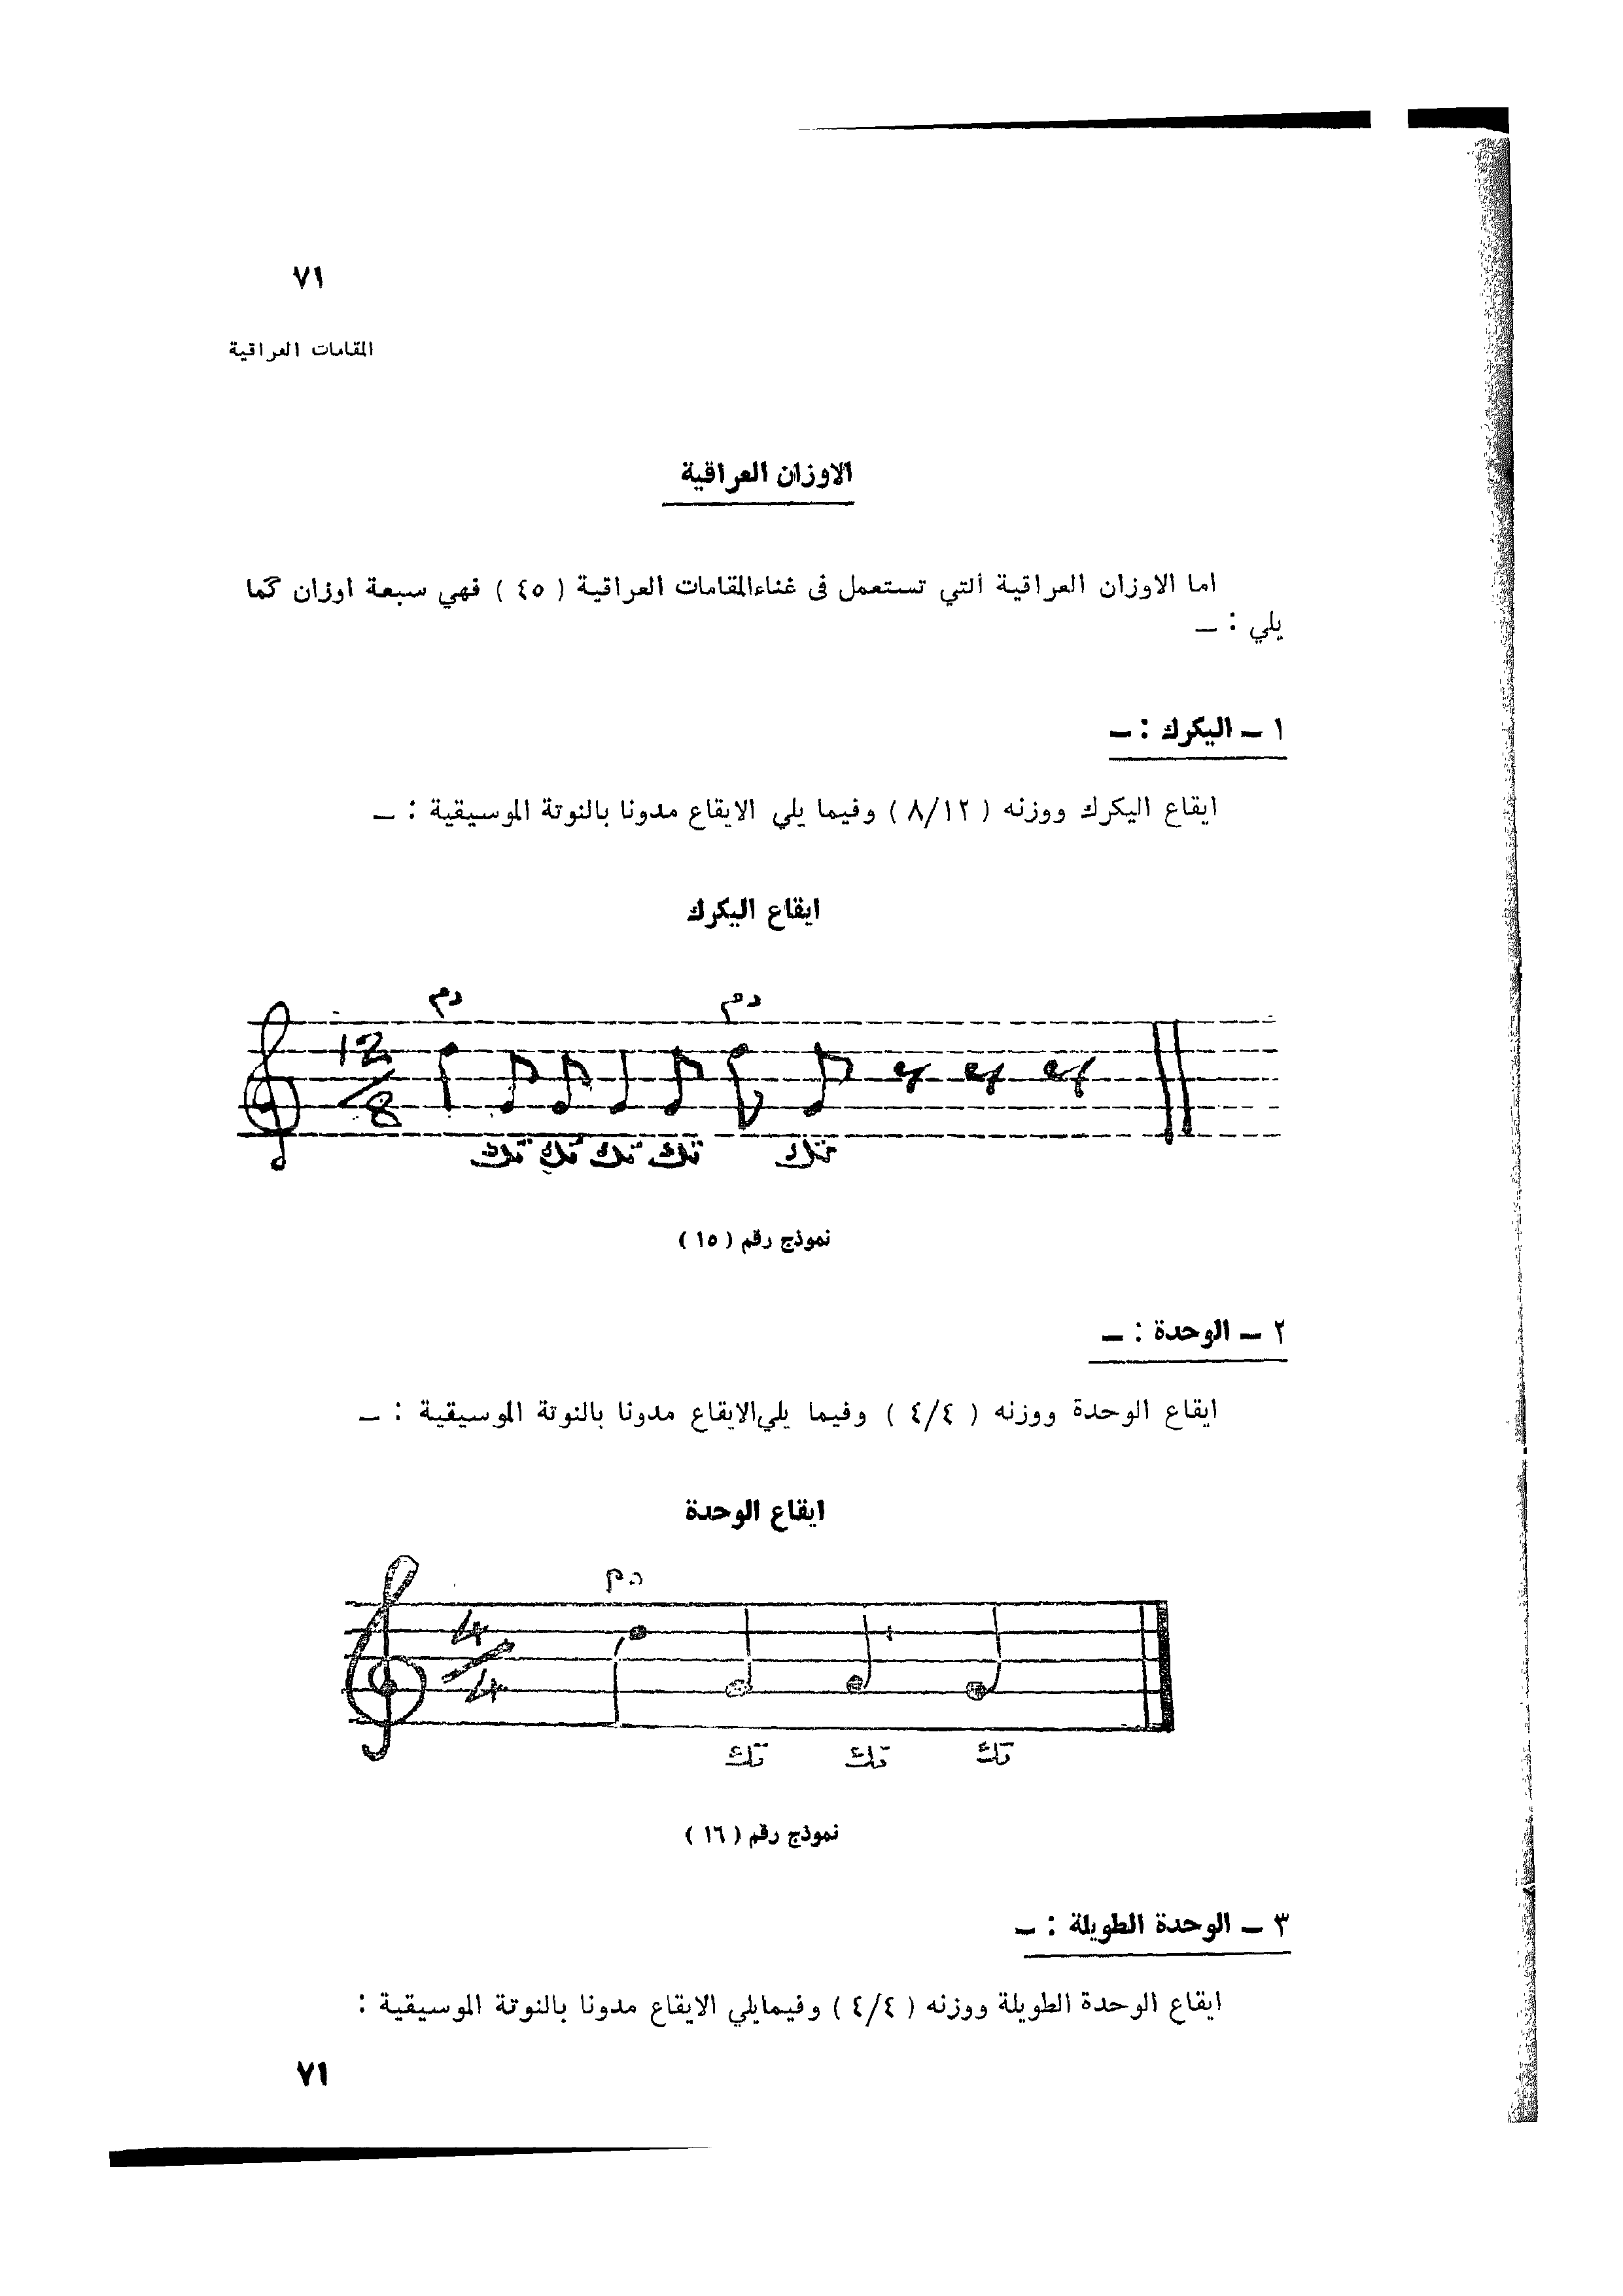 ٧١
المقامات العراقية
الاوزان العراقية
اما الاوزان العراقية التي تستعمل فى غناءالمقامات العراقية ( ٤٥ ) فهي سبعة اوزان كما
يلي : ــ
١ ــ اليكرك : ــ
ايقاع اليكرك ووزنه ( ٨/١٢ ) وفيما يلي الايقاع مدونا بالنوتة الموسيقية : ــ
ايقاع اليكرك
دم دم
12/8
تك تك تك تك تك
نموذج رقم ( ١٥ )
٢ ــ الوحدة : ــ
ايقاع الوحدة ووزنه ( ٤/٤ ) وفيما يلي الايقاع مدونا بالنوتة الموسيقية : ــ
ايقاع الوحدة
دم
4/4
تك تك تك
نموذج رقم ( ١٦ )
٣ ــ الوحدة الطويلة : ــ
ايقاع الوحدة الطويلة ووزنه ( ٤/٤ ) وفيمايلي الايقاع مدونا بالنوتة الموسيقية :
٧١